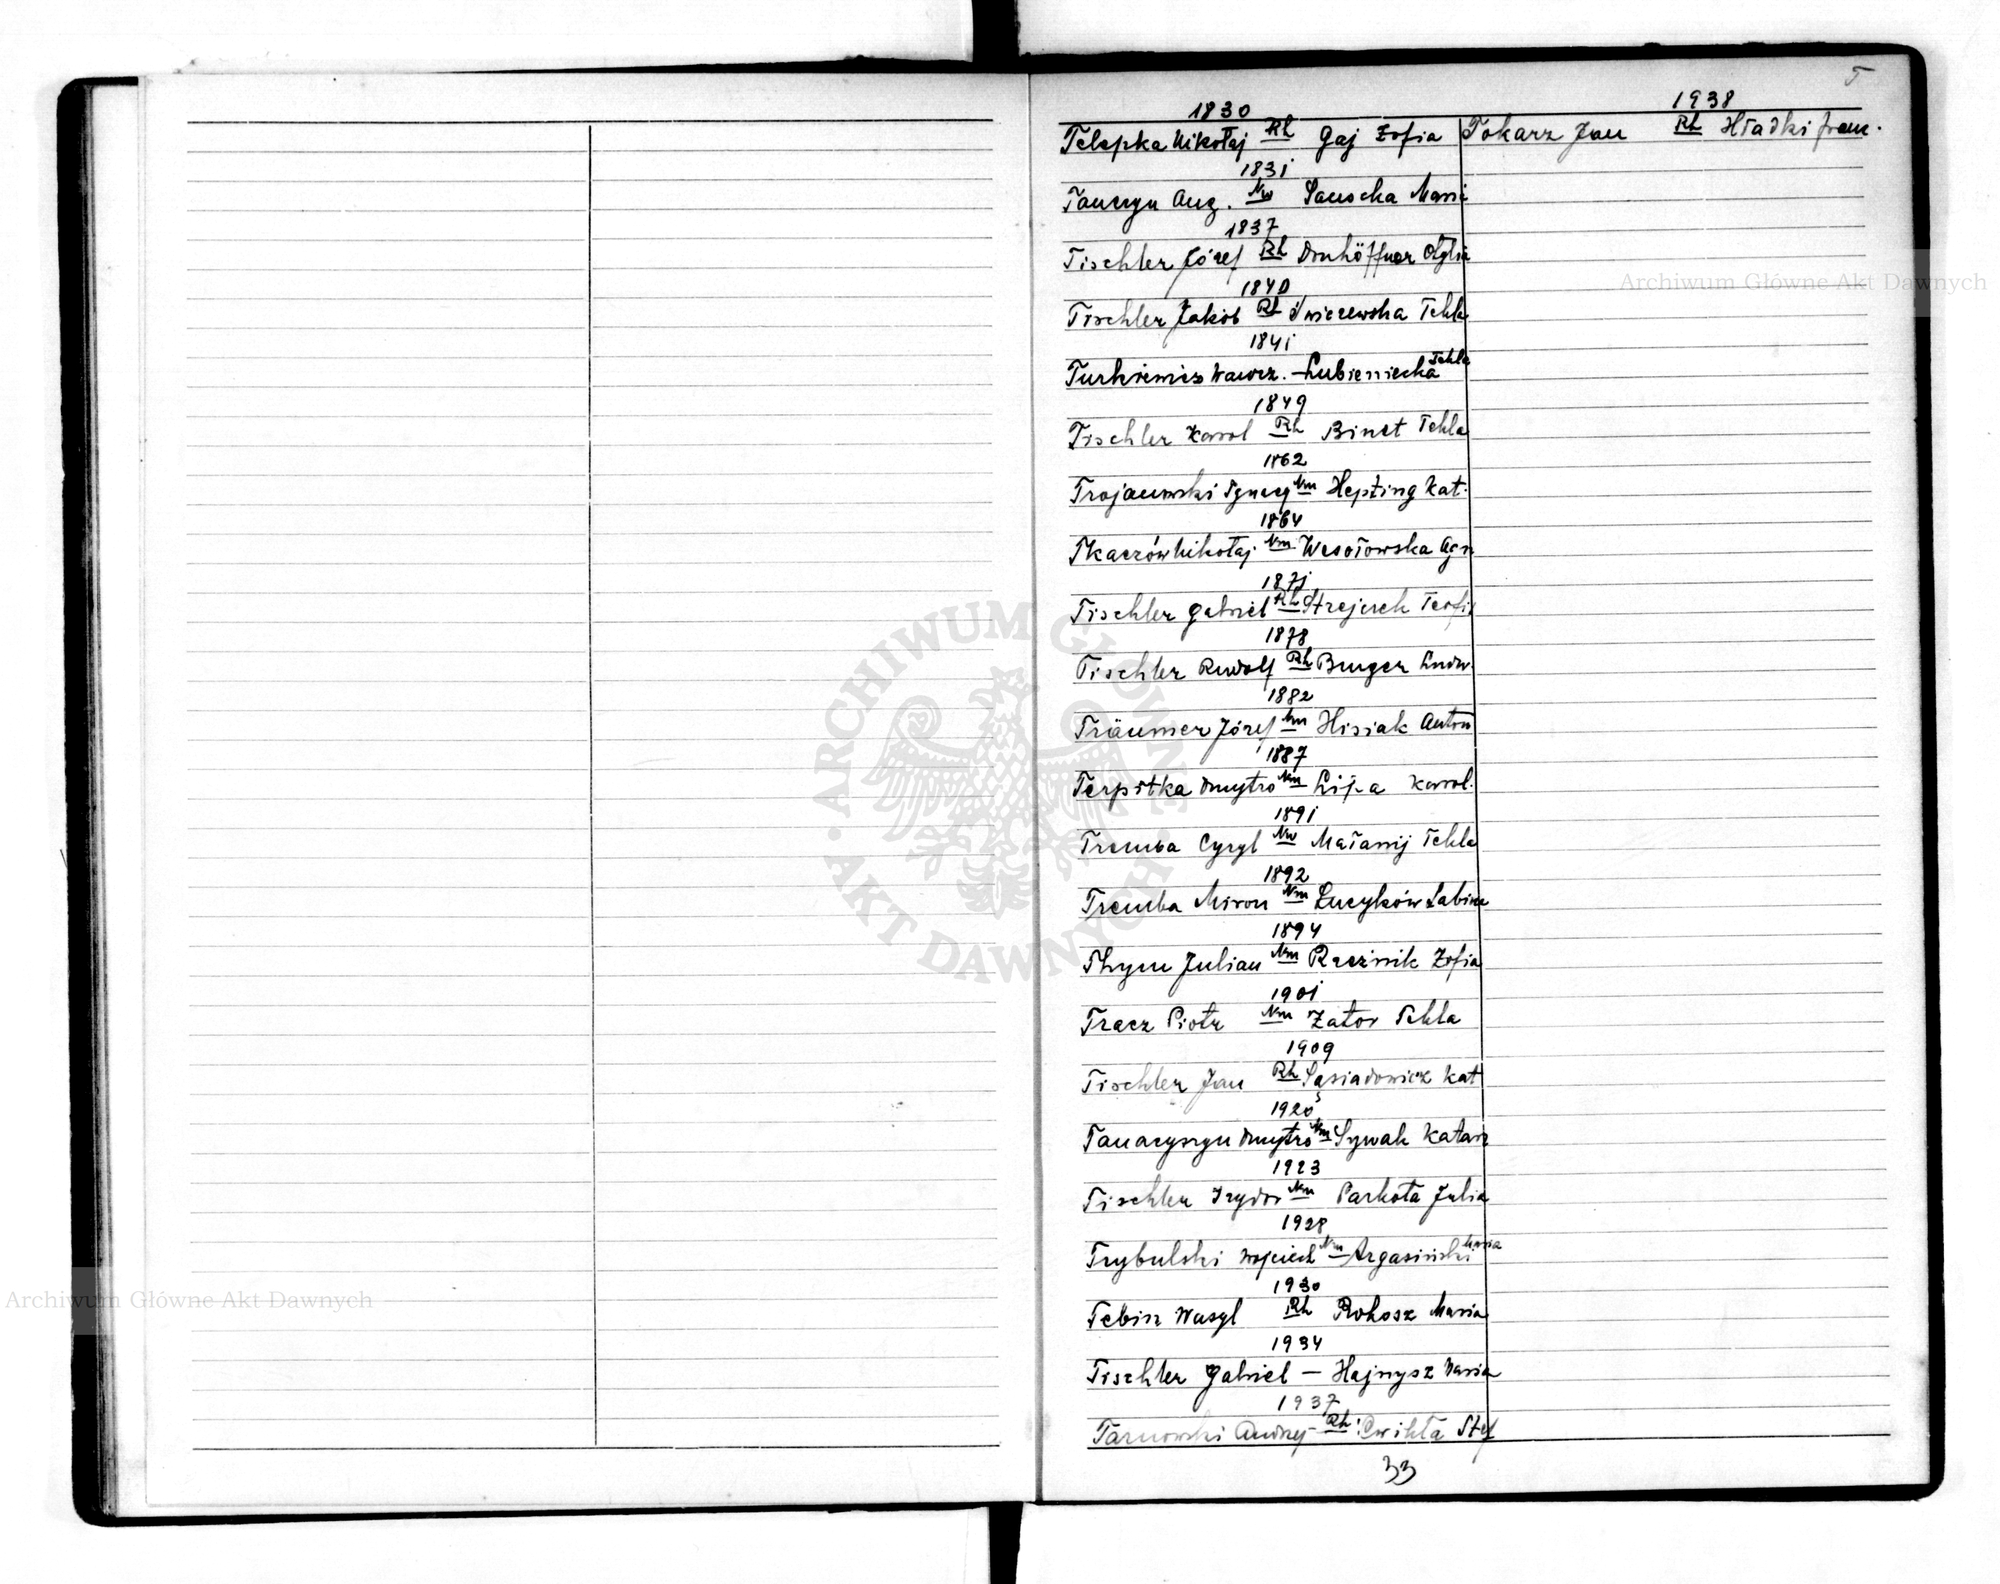 T
1830
Telepka Mikołaj Rh Gaj Zofia
1831
Tanczyn Aug. Nw Sanocka Maria
1837
Tischler Józef Rh Otylia
1840
Tischler Jakób Rh Tekla
1841
Turkiewicz Wawrz. - Łubieniecka Tekla
1849
Tischler Karol Rh Binet Tekla
1862
Trojanowski Ignacy Nm Hepting Kat.
1864
Tkaczów Mikołaj Nm Wesołowska Agn
1871
Tischler Gabriel Rh Teofil
1878
Tischler Rudolf Rh Burger Ludw.
1882
Träumer Józef Nm Hisiak Anton
1887
Terpitka Dmytro Nm Lipa Karol.
1891
Tremba Cyryl Nw Małanij Tekla
1892
Tremba Miron Nm Łucyków Sabina
1894
Thym Julian Nm Rzeźnik Zofia
1901
Tracz Piotr Nm Zator Tekla
1909
Tischler Jan Rh Sąsiadowicz Kat
1920
Tanaczyszyn Dmytro Nm Sywak Katarz
1923
Tischler Izydor Nm Parkota Julia
1928
Trybulski Wojciech Nm - Argasiński Maria
1930
Tebin Wasyl Rh Rokosz Maria
1934
Tischler Gabriel - Hajnysz Maria
1937
Tarnowski Andrzej - Rh: Ćwikła Stef
33
1938
Tokarz Jan Rh Hładki Franc.
Archiwum Główne Akt Dawnych
ARCHIWUM GŁÓWNE · AKT DAWNYCH ·
Archiwum Główne Akt Dawnych